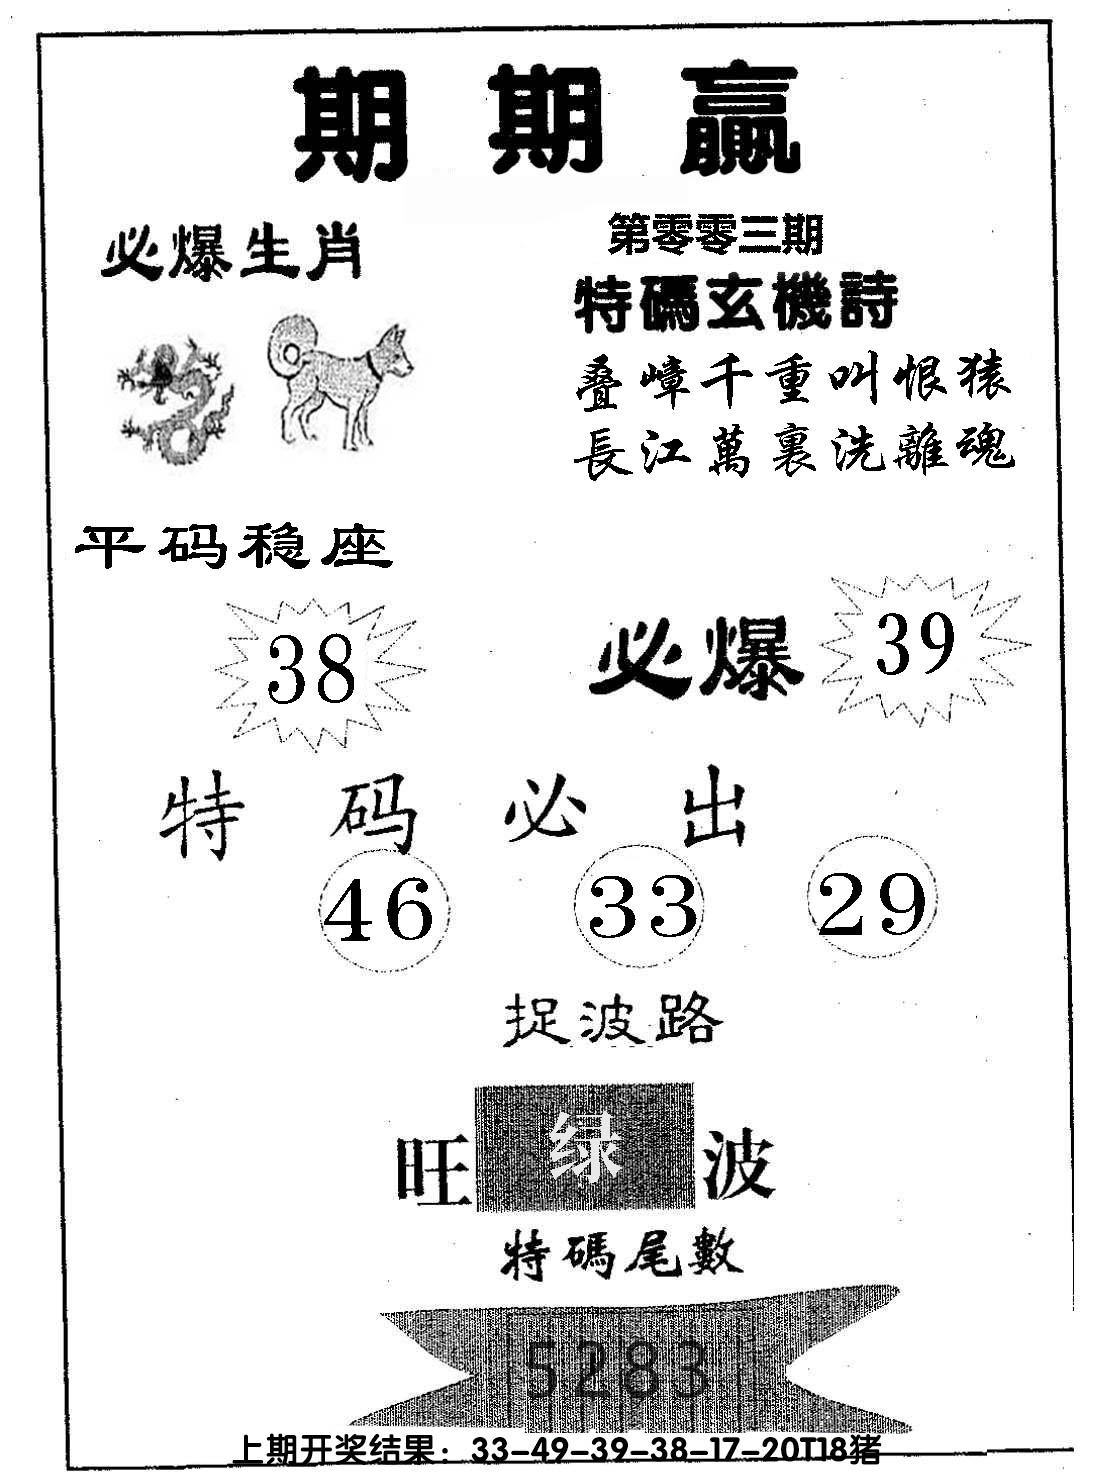 期期赢
必爆生肖
第零零三期
特碼玄機詩
叠嶂千重叫恨猿
長江萬裏洗離魂
平码稳座
38
必爆 39
特码必出
46 33 29
捉波路
旺 绿 波
特碼尾數
5283
上期开奖结果：33-49-39-38-17-20T18猪